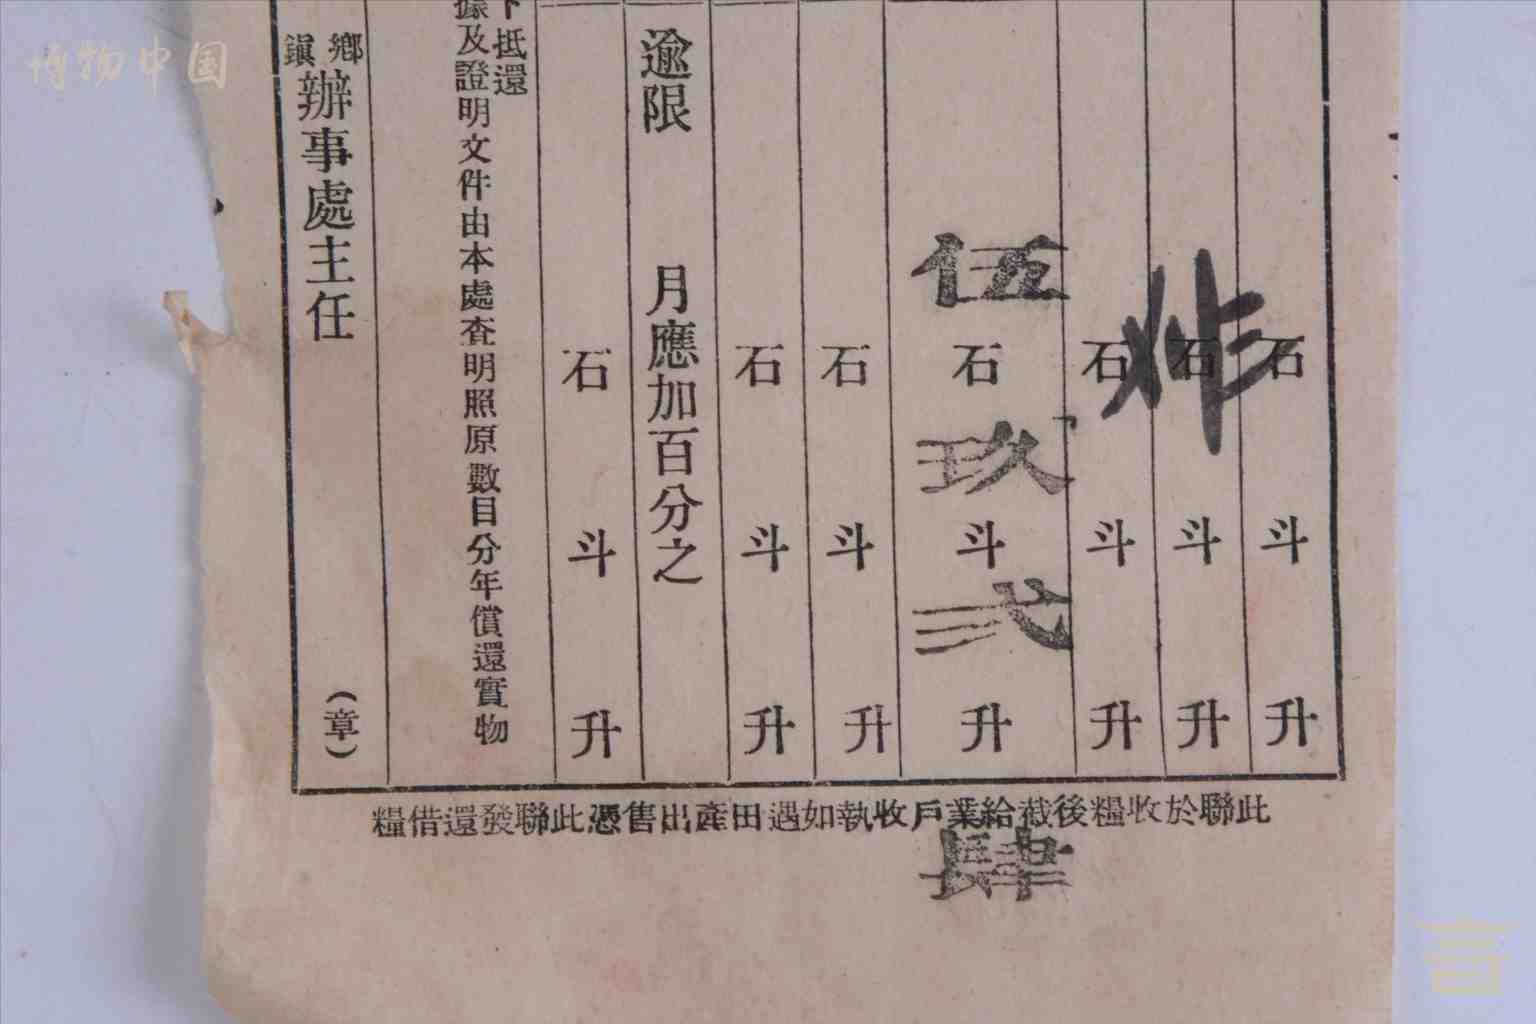 博物中国
石斗升
石斗升
石斗升
伍石玖斗弍升肆
石斗升
石斗升
逾限 月應加百分之
石斗升
抵還
據及證明文件由本處查明照原數目分年償還實物
鄉鎮辦事處主任 (章)
此聯於收糧後截給業戶收執如遇田產出售憑此聯發還借糧